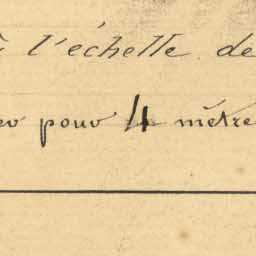 à l'échelle de
pour 4 mètre